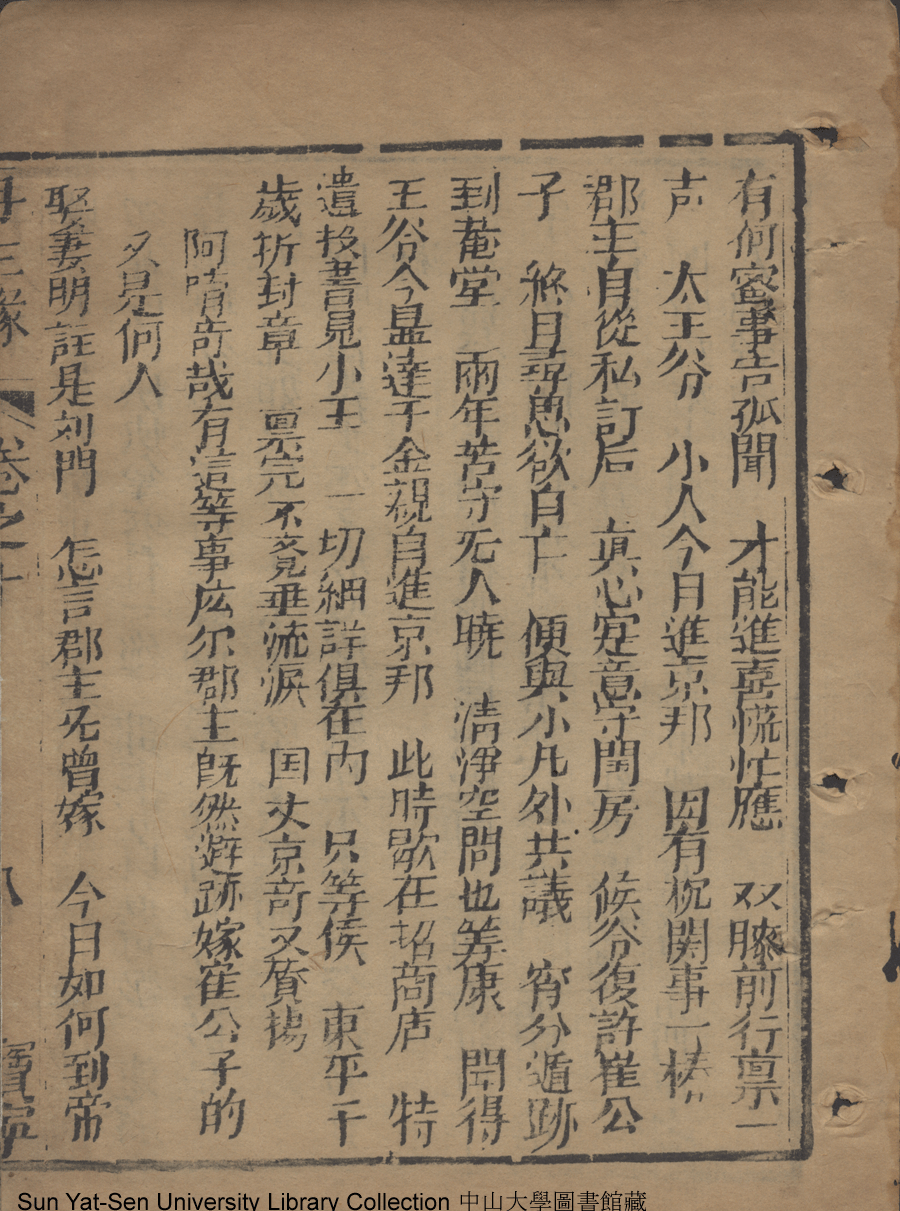 有何密事告孤聞　才能進喜慌忙應　双膝前行禀一
声　太王爷　小人今日進京邦　因有枕関事一樁
郡主自從私訂后　真心定意守閨房　候爷復許崔公
子　終日尋愚欲自亡　便與小凡外共議　宵分遁跡
到菴堂　兩年苦守旡人曉　清淨空問也筭康　聞得
王爷今昷達　千金親自進京邦　此時歇在招商店　特
遣投書見小王　一切細詳俱在內　只等侯　東平千
歲折封章　禀完不覔垂流淚　国丈京竒又賡揚
阿唷竒哉有這等事庅尔郡主既然避跡嫁崔公子的
又是何人
娶妻明註是刘門　怎言郡主旡曾嫁　今日如何到帝
再生緣　卷之十　八　寶寧
Sun Yat-Sen University Library Collection 中山大學圖書館藏